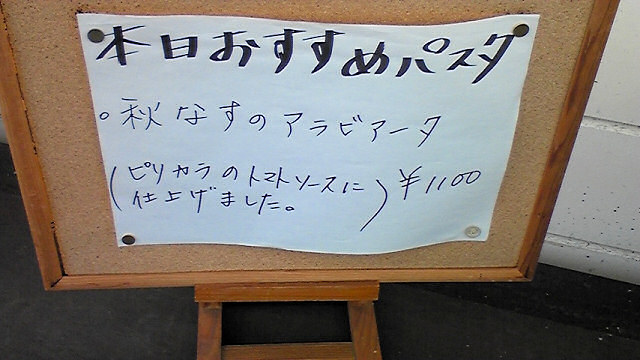 本日おすすめパスタ
。秋なすのアラビアータ
(ピリカラのトマトソースに仕上げました。) ¥1100